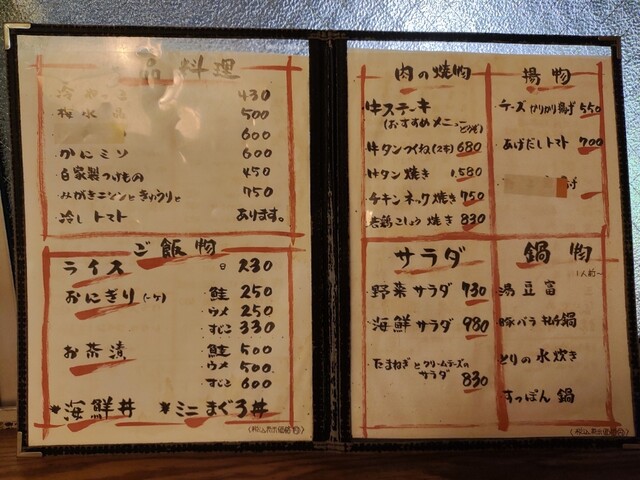 品料理
430
500
600
かにミソ 600
自家製つけもの 450
みがきニシンときゅうりと 750
冷しトマト あります。
ご飯物
ライス 230
おにぎり(一ケ) 鮭 250
ウメ 250
すじこ 330
お茶漬 鮭 500
ウメ 500
すじこ 600
*海鮮丼 *ミニまぐろ丼
肉の焼物
牛ステーキ
(おすすめメニューどうぞ)
牛タンつくね(2本) 680
牛タン焼き 1,580
チキンネック焼き 750
若鶏こしょう焼き 830
揚物
チーズカリカリ揚げ 550
あげだしトマト 700
サラダ
野菜サラダ 730
海鮮サラダ 980
たまねぎとクリームチーズの
サラダ 830
鍋物
1人前~
湯豆富
豚バラキムチ鍋
とりの水炊き
すっぽん鍋